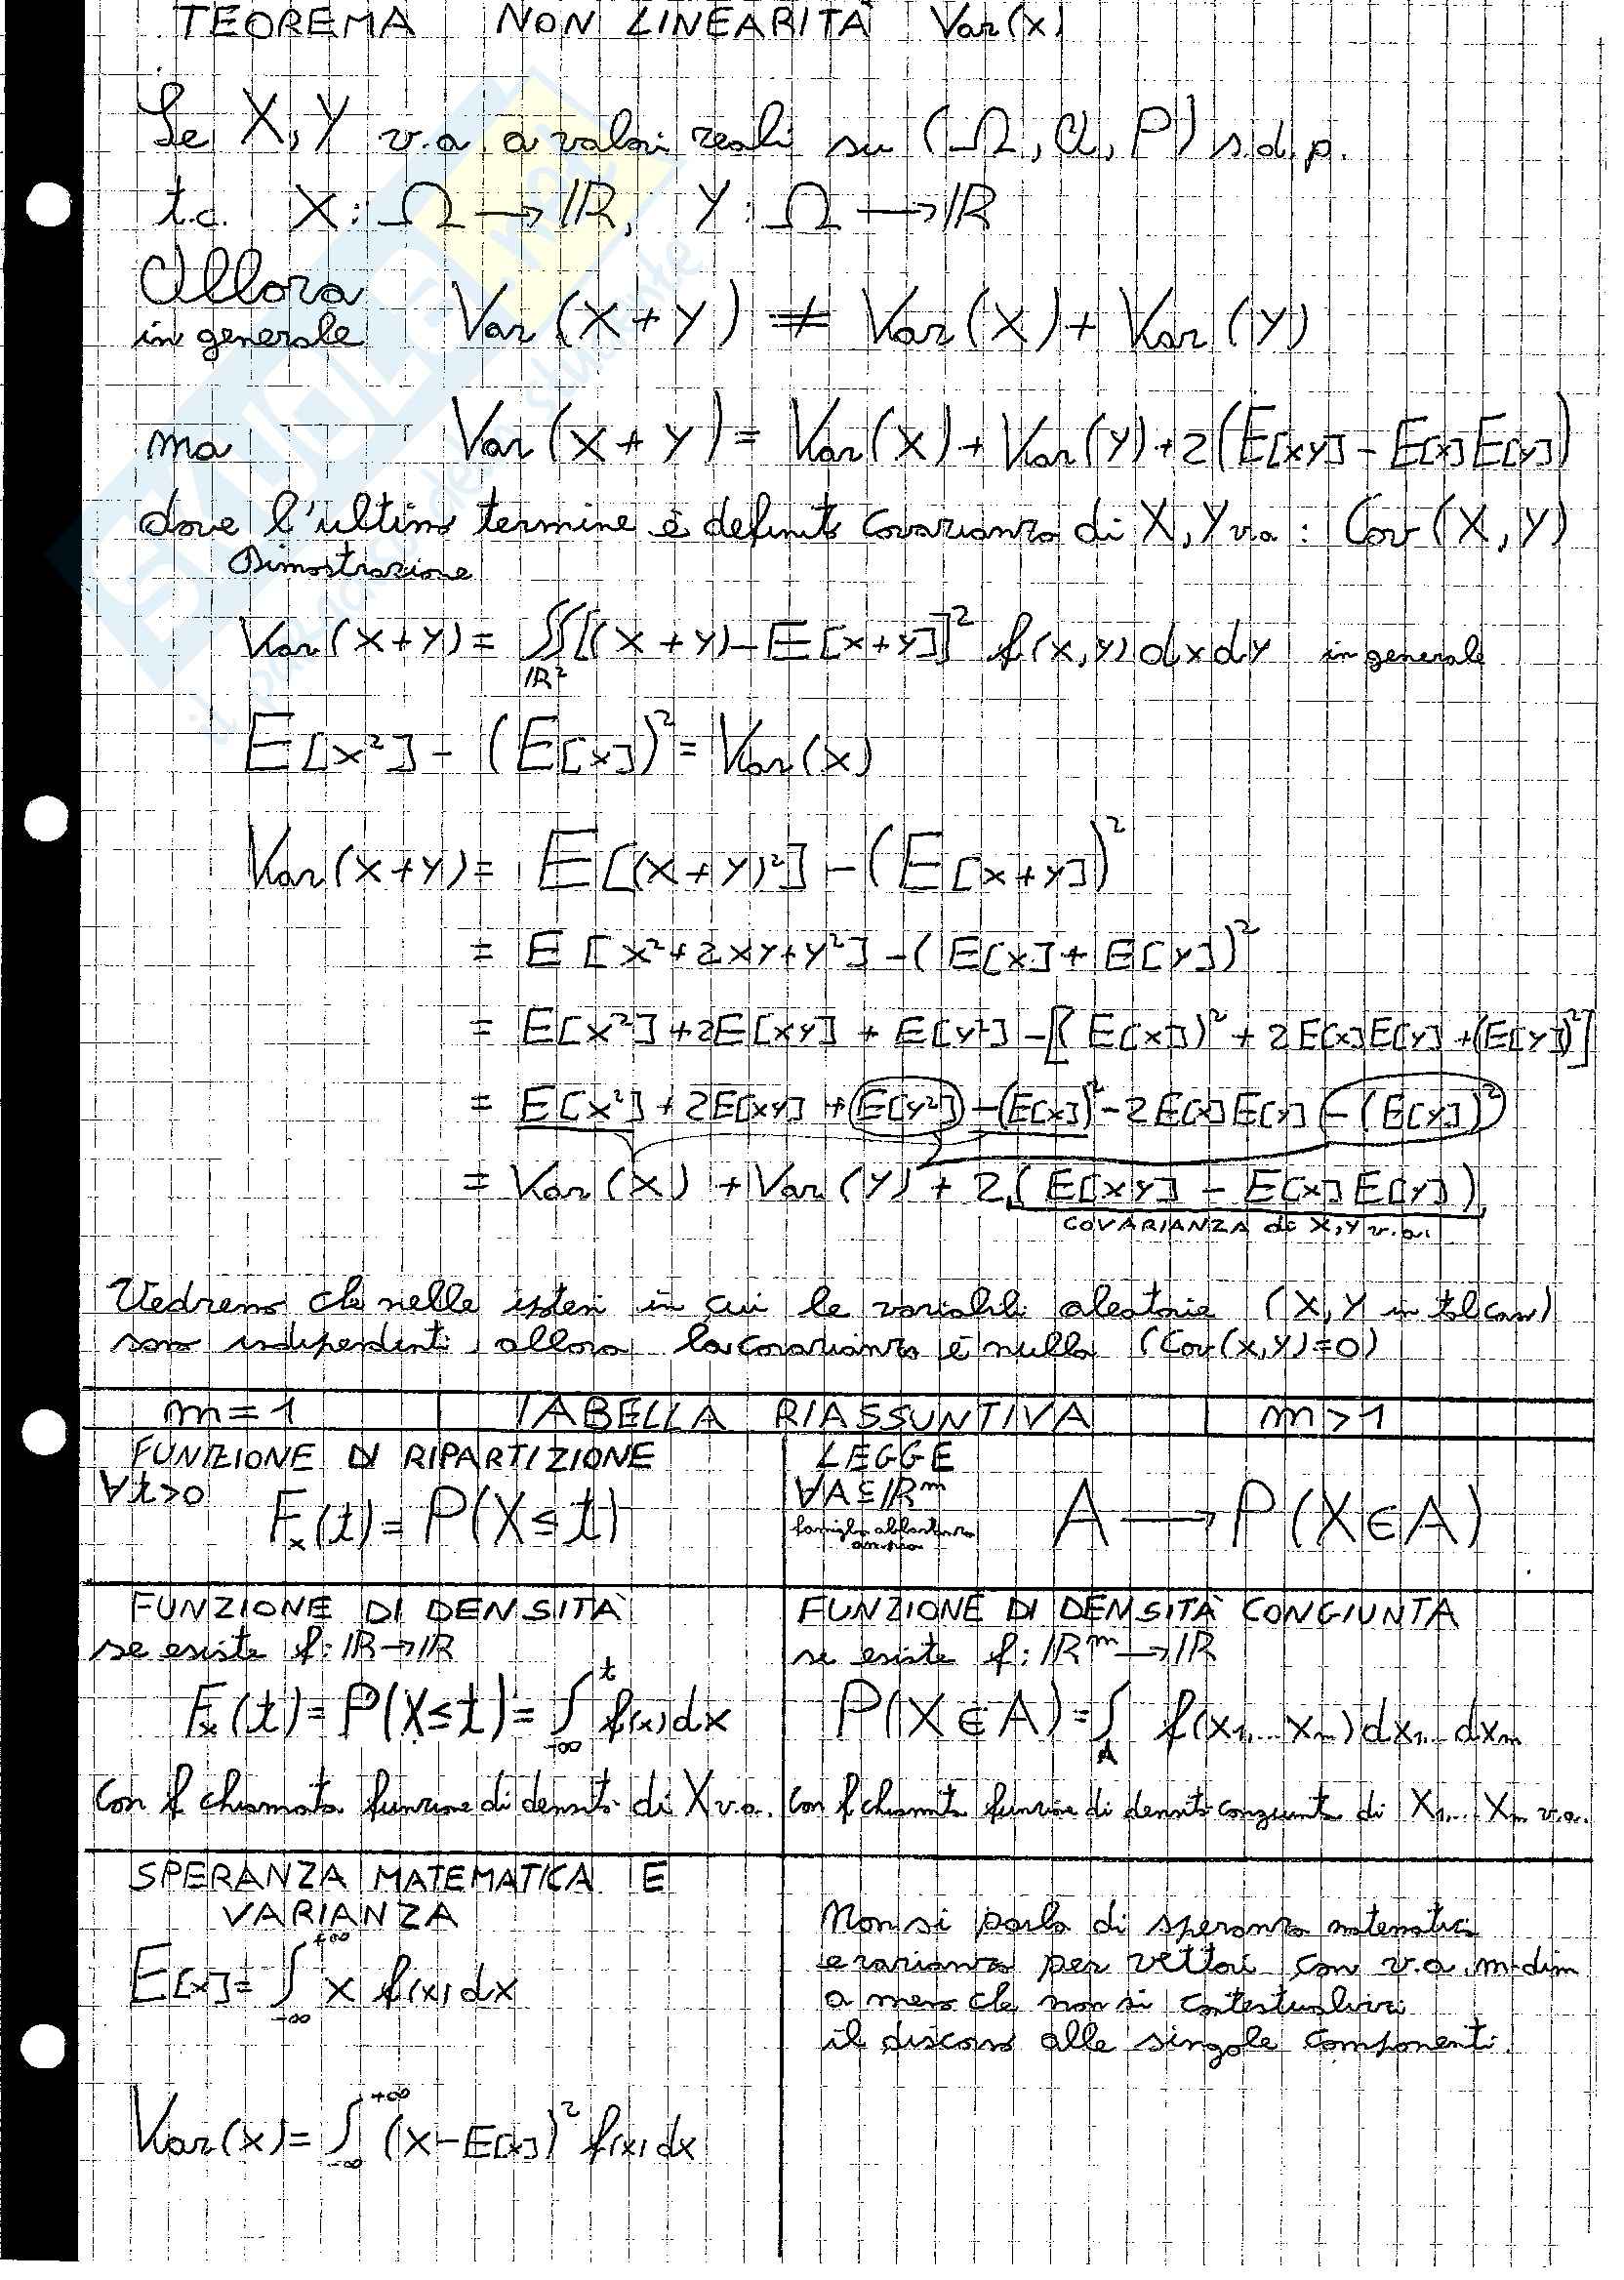 TEOREMA NON LINEARITÀ Var(X)
Se X, Y v.a. a valori reali su (Ω, 𝒜, P) s.d.p.
t.c. X: Ω → ℝ, Y: Ω → ℝ
Allora
in generale Var(X+Y) ≠ Var(X) + Var(Y)
ma Var(X+Y) = Var(X) + Var(Y) + 2(E[XY] - E[X]E[Y])
dove l'ultimo termine è definito covarianza di X, Y v.a : Cov(X, Y)
Dimostrazione
Var(X+Y) = ∬ℝ² [(X+Y) - E[X+Y]]² f(x,y) dx dy in generale
E[X²] - (E[X])² = Var(X)
Var(X+Y) = E[(X+Y)²] - (E[X+Y])²
= E[X²+2XY+Y²] - (E[X] + E[Y])²
= E[X²] + 2E[XY] + E[Y²] - [(E[X])² + 2E[X]E[Y] + (E[Y])²]
= E[X²] + 2E[XY] + E[Y²] - (E[X])² - 2E[X]E[Y] - (E[Y])²
= Var(X) + Var(Y) + 2(E[XY] - E[X]E[Y])
COVARIANZA di X, Y v.a.
Vedremo che nelle ipotesi in cui le variabili aleatorie (X, Y in tal caso)
sono indipendenti, allora la covarianza è nulla (Cov(X,Y)=0)
m=1 TABELLA RIASSUNTIVA m>1
FUNZIONE DI RIPARTIZIONE
∀t>0 Fx(t) = P(X ≤ t)
LEGGE
∀A ⊆ ℝᵐ A → P(X ∈ A)
famiglia abbastanza
FUNZIONE DI DENSITÀ
se esiste f: ℝ → ℝ
Fx(t) = P(X ≤ t) = ∫₋∞ᵗ f(x) dx
con f chiamata funzione di densità di X v.a.
FUNZIONE DI DENSITÀ CONGIUNTA
se esiste f: ℝᵐ → ℝ
P(X ∈ A) = ∫A f(x₁,... xₘ) dx₁... dxₘ
con f chiamata funzione di densità congiunta di X₁... Xₘ v.a.
SPERANZA MATEMATICA E
VARIANZA
E[X] = ∫₋∞⁺∞ x f(x) dx
Var(X) = ∫₋∞⁺∞ (x-E[X])² f(x) dx
Non si parla di speranza matematica
e varianza per vettori con v.a. m-dim
a meno che non si contestualizzi
il discorso alle singole componenti.